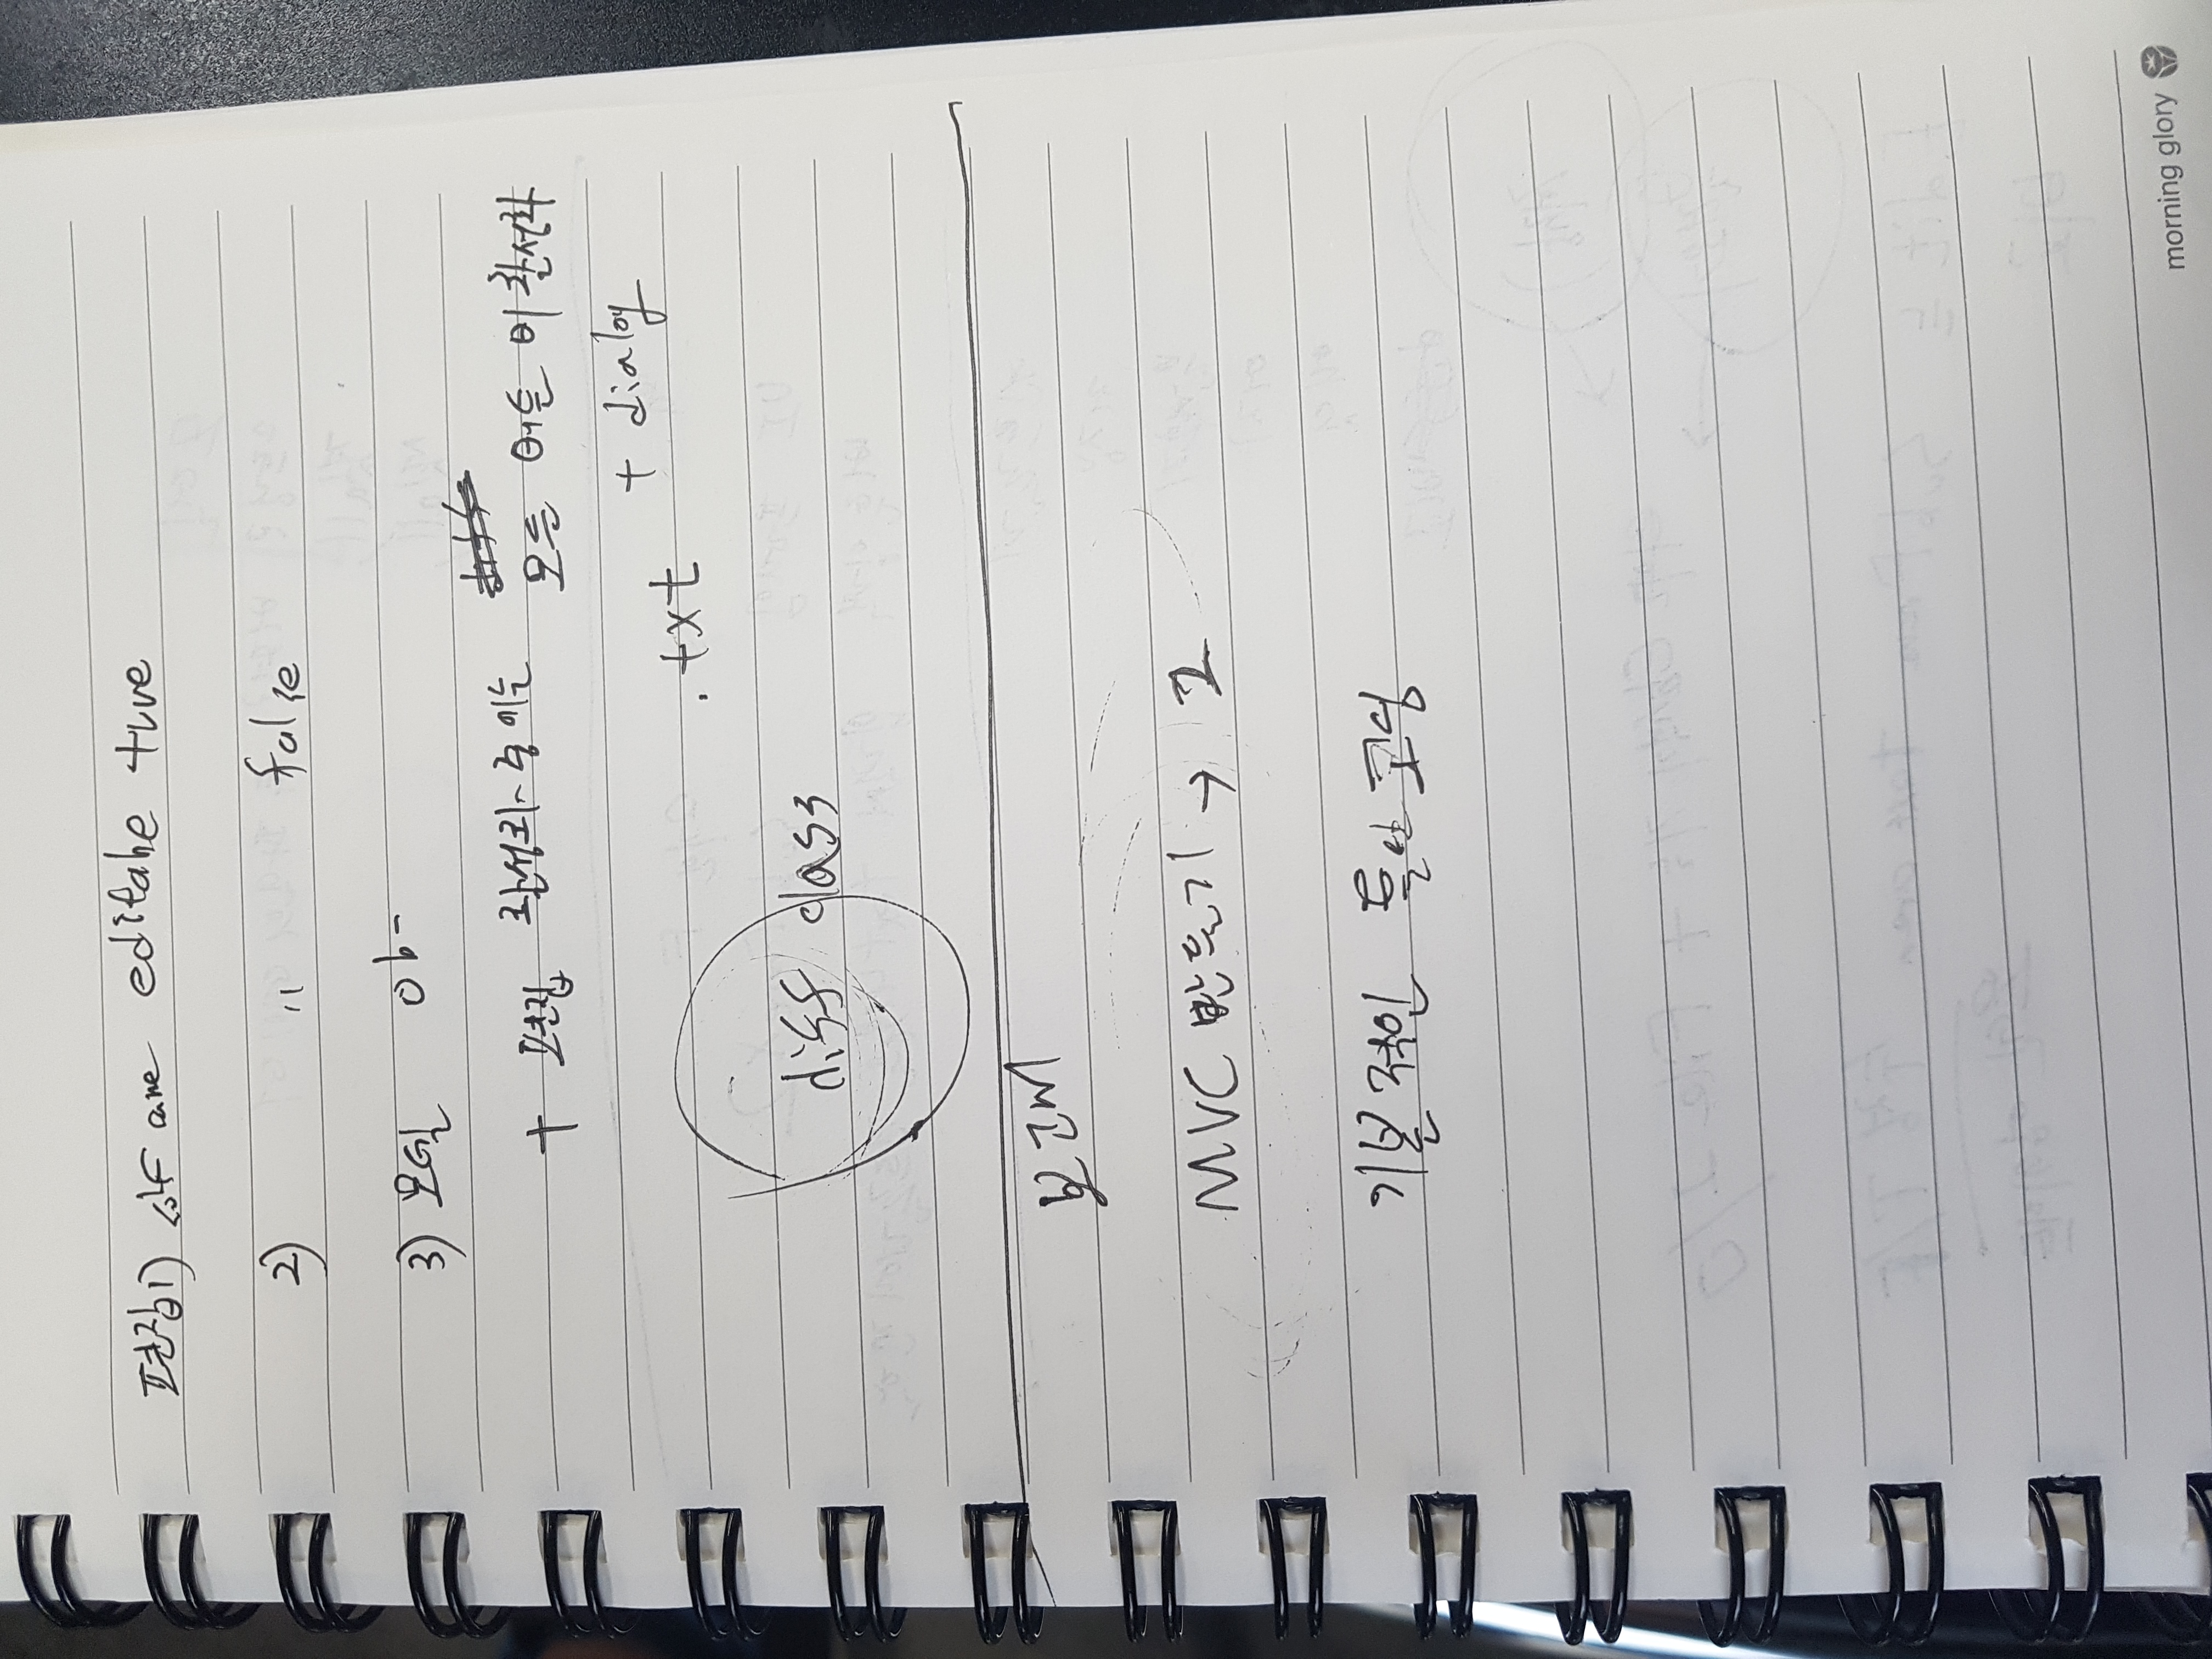 편집1) editabe true
2) " false
3) 모델 ob-
+ 편집 활성화 중에는 모든 버튼 비활성화
+ dialog
.txt
diff class
보고서
MVC 만들기 → 2
기본적인 틀만 코딩
morning glory